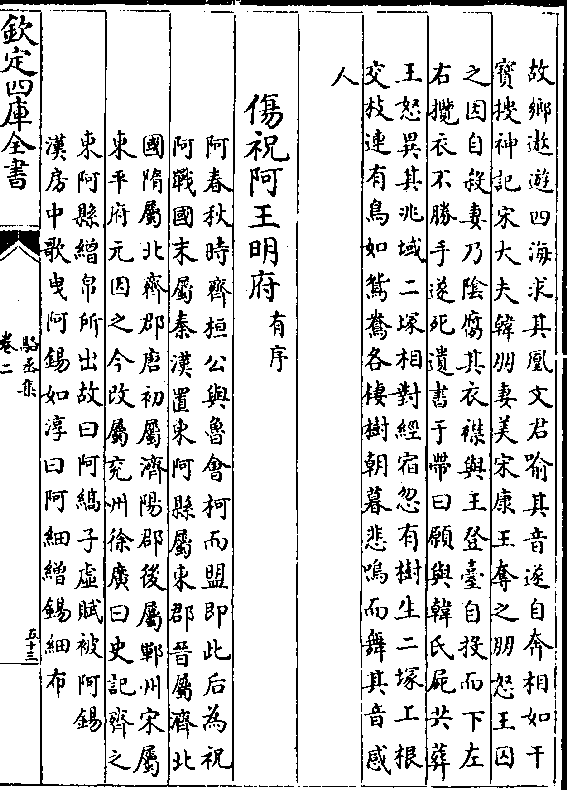 故鄉遨遊四海求其凰文君喻其音遂自奔相如干
寳搜神記宋大夫韓朋妻美宋康王奪之朋怒王囚
之因自殺妻乃陰腐其衣襟與王登臺自投而下左
右攬衣不勝手遂死遺書于帶曰願與韓氏屍共葬
王怒異其兆域二塚相對經宿忽有樹生二塚上根
交枝連有鳥如鴛鴦各棲樹朝暮悲鳴而舞其音感
人
傷祝阿王明府有序
阿春秋時齊桓公與魯會柯而盟即此后為祝
阿戰國末屬秦漢置東阿縣屬東郡晉屬濟北
國隋屬北齊郡唐初屬濟陽郡後屬鄆州宋屬
東平府元因之今改屬兖州徐廣曰史記齊之
東阿縣繒帛所出故曰阿縞子虛賦被阿錫
漢房中歌曳阿錫如淳曰阿細繒錫細布
欽定四庫全書
駱丞集
卷二
五十三